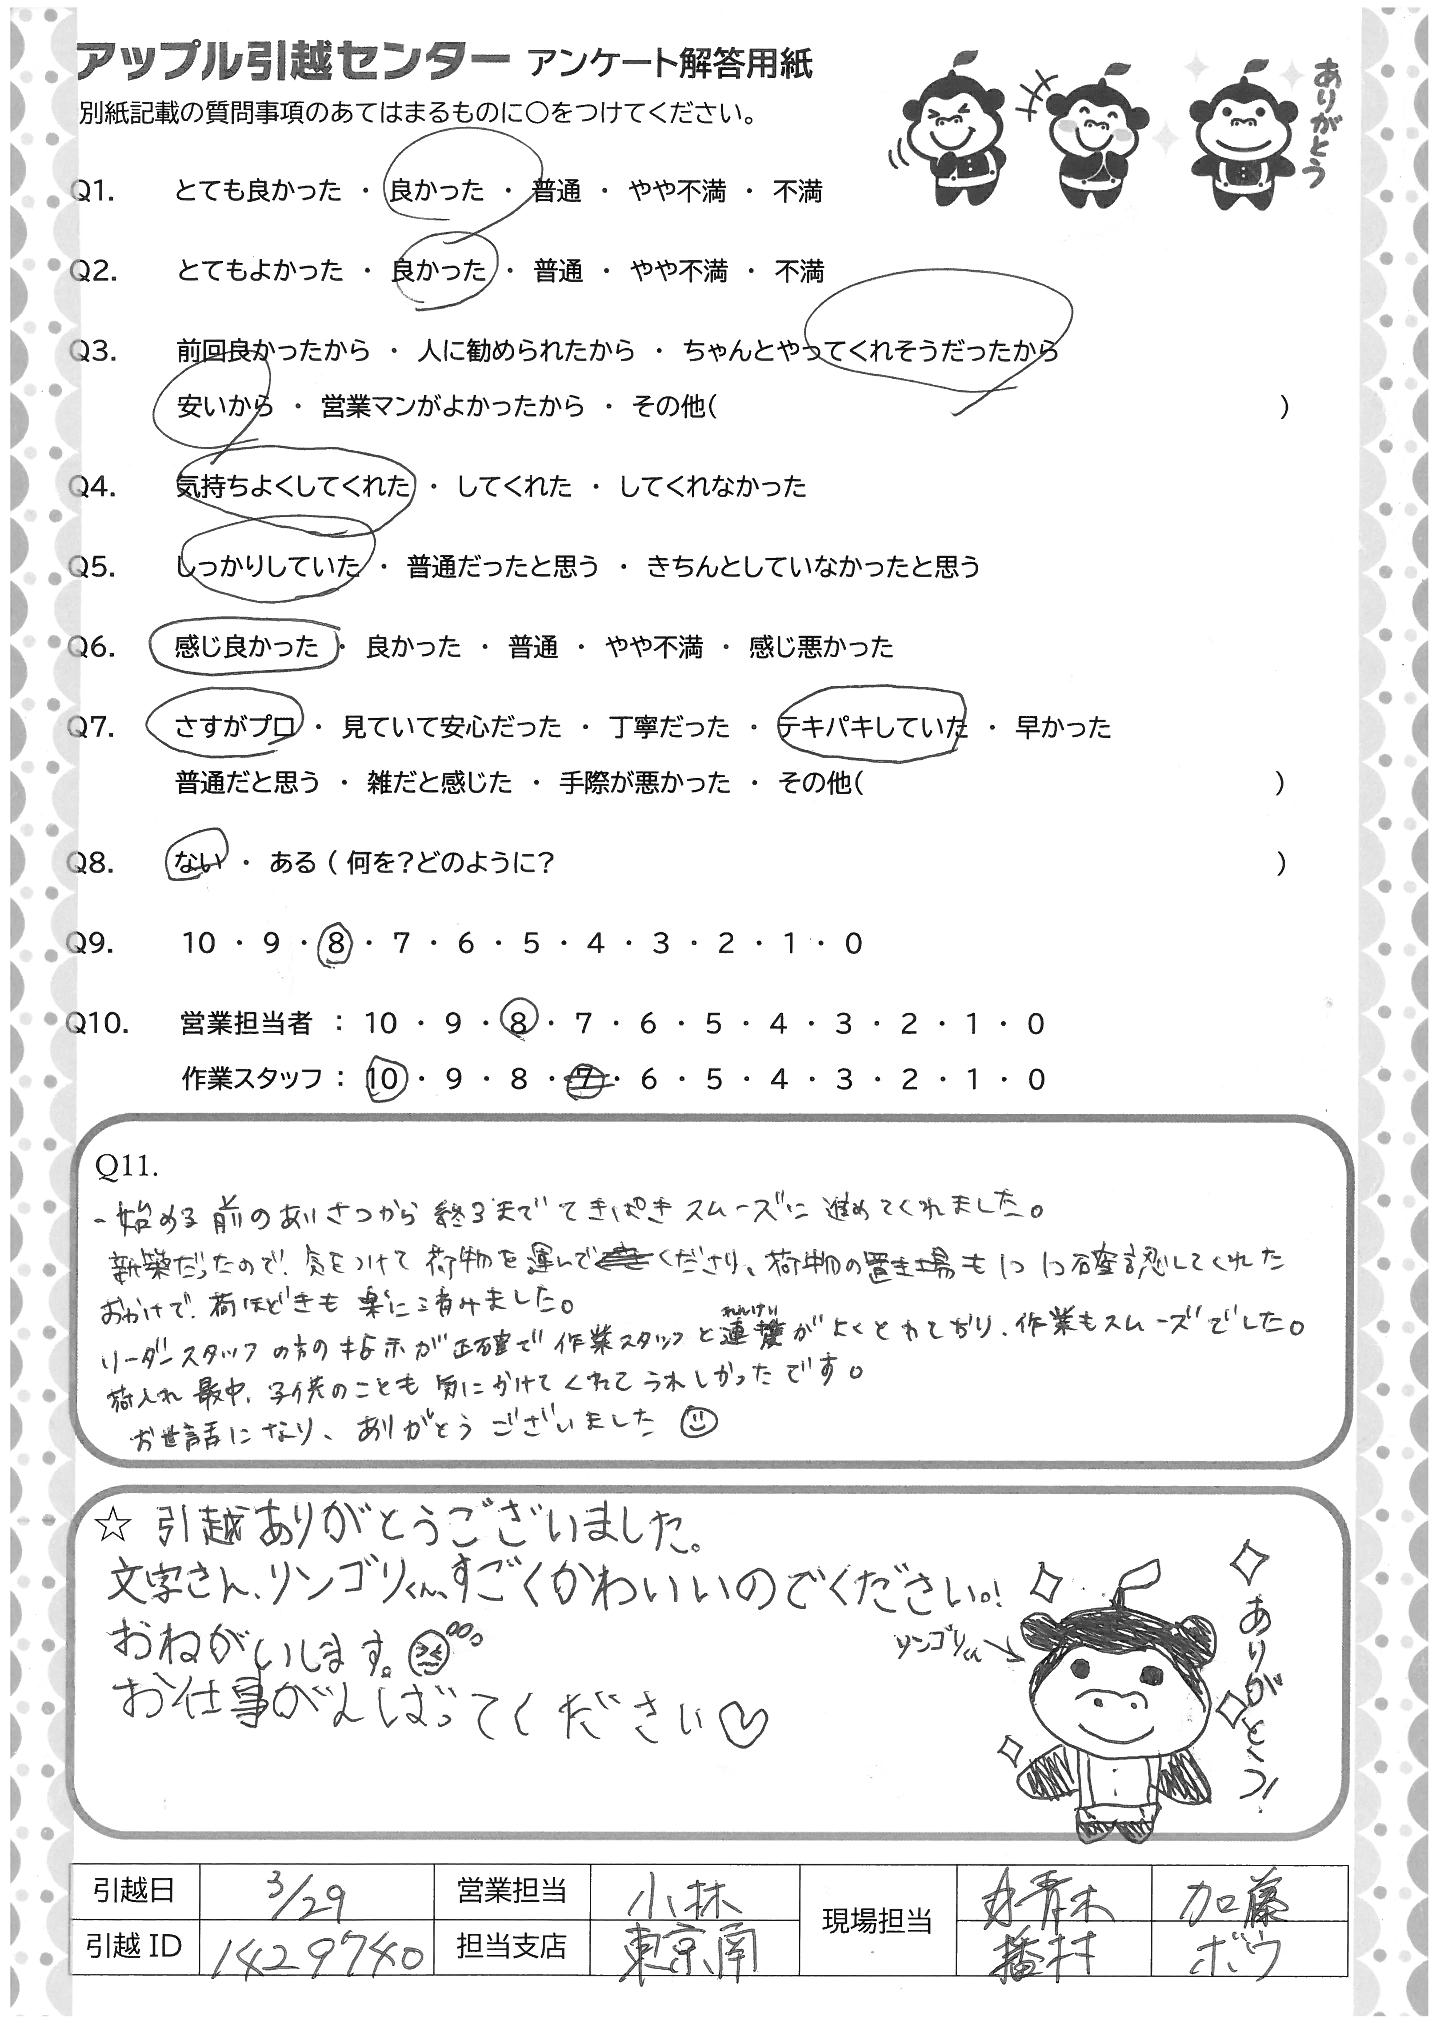 アップル引越センター アンケート解答用紙
別紙記載の質問事項のあてはまるものに○をつけてください。
ありがとう
Q1. とても良かった ・ 良かった ・ 普通 ・ やや不満 ・ 不満
Q2. とてもよかった ・ 良かった ・ 普通 ・ やや不満 ・ 不満
Q3. 前回良かったから ・ 人に勧められたから ・ ちゃんとやってくれそうだったから
安いから ・ 営業マンがよかったから ・ その他( )
Q4. 気持ちよくしてくれた ・ してくれた ・ してくれなかった
Q5. しっかりしていた ・ 普通だったと思う ・ きちんとしていなかったと思う
Q6. 感じ良かった ・ 良かった ・ 普通 ・ やや不満 ・ 感じ悪かった
Q7. さすがプロ ・ 見ていて安心だった ・ 丁寧だった ・ テキパキしていた ・ 早かった
普通だと思う ・ 雑だと感じた ・ 手際が悪かった ・ その他( )
Q8. ない ・ ある ( 何を?どのように? )
Q9. 10 ・ 9 ・ 8 ・ 7 ・ 6 ・ 5 ・ 4 ・ 3 ・ 2 ・ 1 ・ 0
Q10. 営業担当者 : 10 ・ 9 ・ 8 ・ 7 ・ 6 ・ 5 ・ 4 ・ 3 ・ 2 ・ 1 ・ 0
作業スタッフ : 10 ・ 9 ・ 8 ・ 7 ・ 6 ・ 5 ・ 4 ・ 3 ・ 2 ・ 1 ・ 0
Q11.
・始める前のあいさつから終るまでてきぱきスムーズに進めてくれました。
新築だったので、気をつけて荷物を運んでくださり、荷物の置き場も1つ1つ確認してくれた
おかけで、荷ほどきも楽に済みました。
リーダースタッフの方の指示が正確で作業スタッフと連携がよくとれており、作業もスムーズでした。
れんけい
荷入れ最中、子供のことも気にかけてくれてうれしかったです。
お世話になり、ありがとうございました
☆ 引越ありがとうございました。
文字さん、リンゴリくん、すごくかわいいのでください。!
おねがいします。
お仕事がんばってください♡
リンゴリくん
ありがとう!
引越日 3/29 営業担当 小林 現場担当 青木 加藤
引越 ID 1429740 担当支店 東京南 播村 ボウ